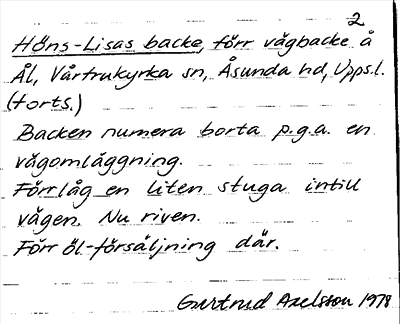 2
Höns-Lisas backe, förr vägbacke å
Ål, Vårfrukyrka sn, Åsunda hd, Upps.l.
(forts.)
Backen numera borta p.g.a. en
vägomläggning.
Förr låg en liten stuga intill
vägen. Nu riven.
Förr öl-försäljning där.
Gertrud Axelsson 1978